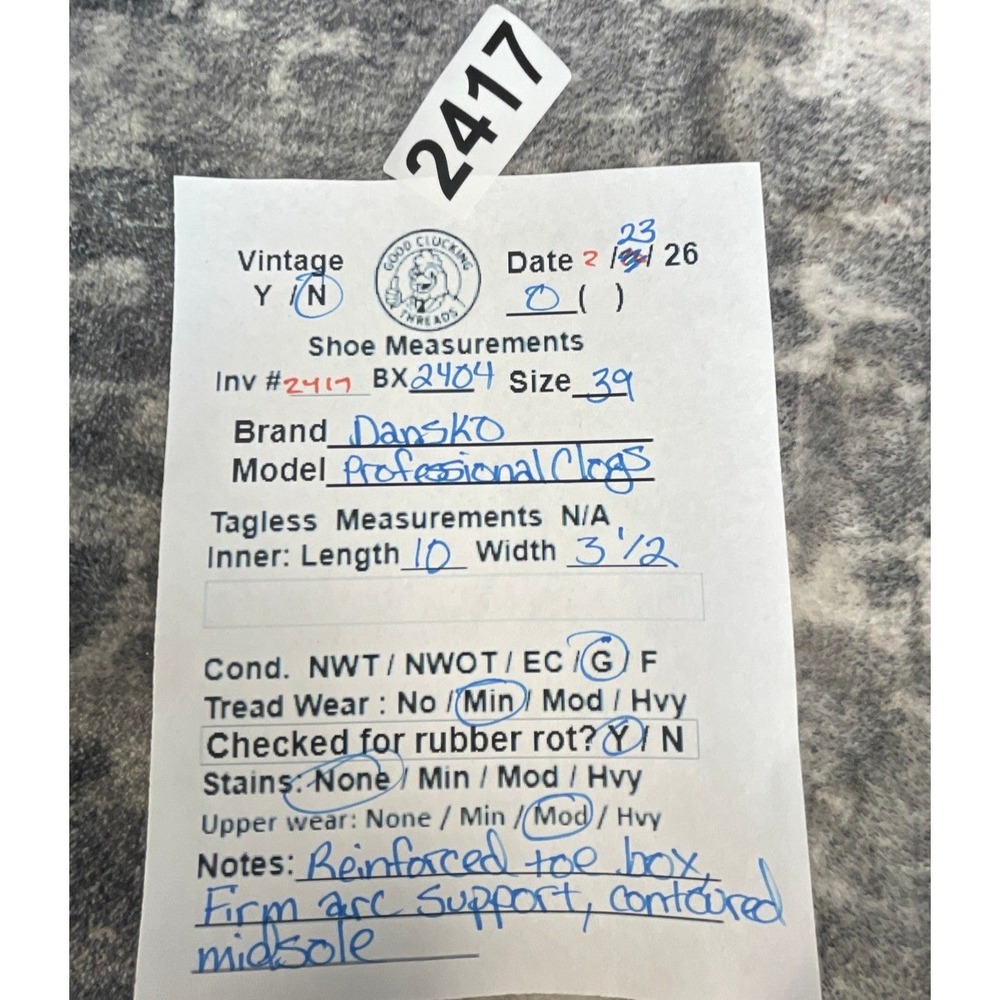 2417
Vintage
Y / N
GOOD CLUCKING
THREADS
Date 2 / 23 / 26
0 ( )
Shoe Measurements
Inv # 2417 BX 2404 Size 39
Brand Dansko
Model Professional Clogs
Tagless Measurements N/A
Inner: Length 10 Width 3 1/2
Cond. NWT / NWOT / EC / G / F
Tread Wear : No / Min / Mod / Hvy
Checked for rubber rot? Y / N
Stains: None / Min / Mod / Hvy
Upper wear: None / Min / Mod / Hvy
Notes: Reinforced toe box,
Firm arc support, contoured
midsole